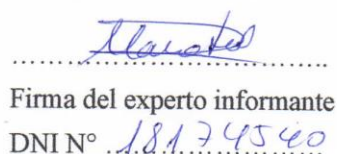 Firma del experto informante
DNI N° 18174540